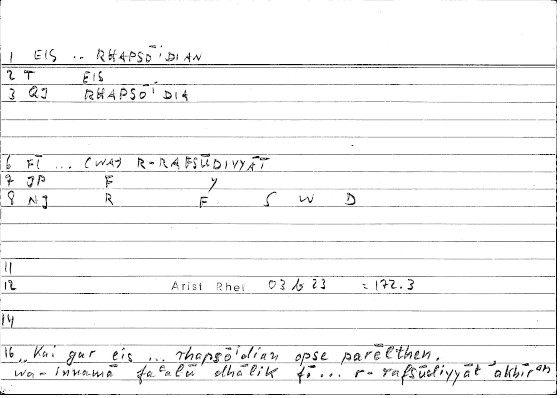 1 EIS .. RHAPSŌIDIAN
2 T EIS
3 QJ RHAPSŌIDIA
6 FĪ ... (WA) R-RAFSŪDIYYĀT
7 JP F Y
8 NJ R F S W D
11
12 Arist Rhet 03 b 23 = 172.3
14
16 "Kai gar eis ... rhapsōidian opse parēlthen.
wa-innamā faʿalū dhālik fī ... r-rafsūdiyyāt akhīran